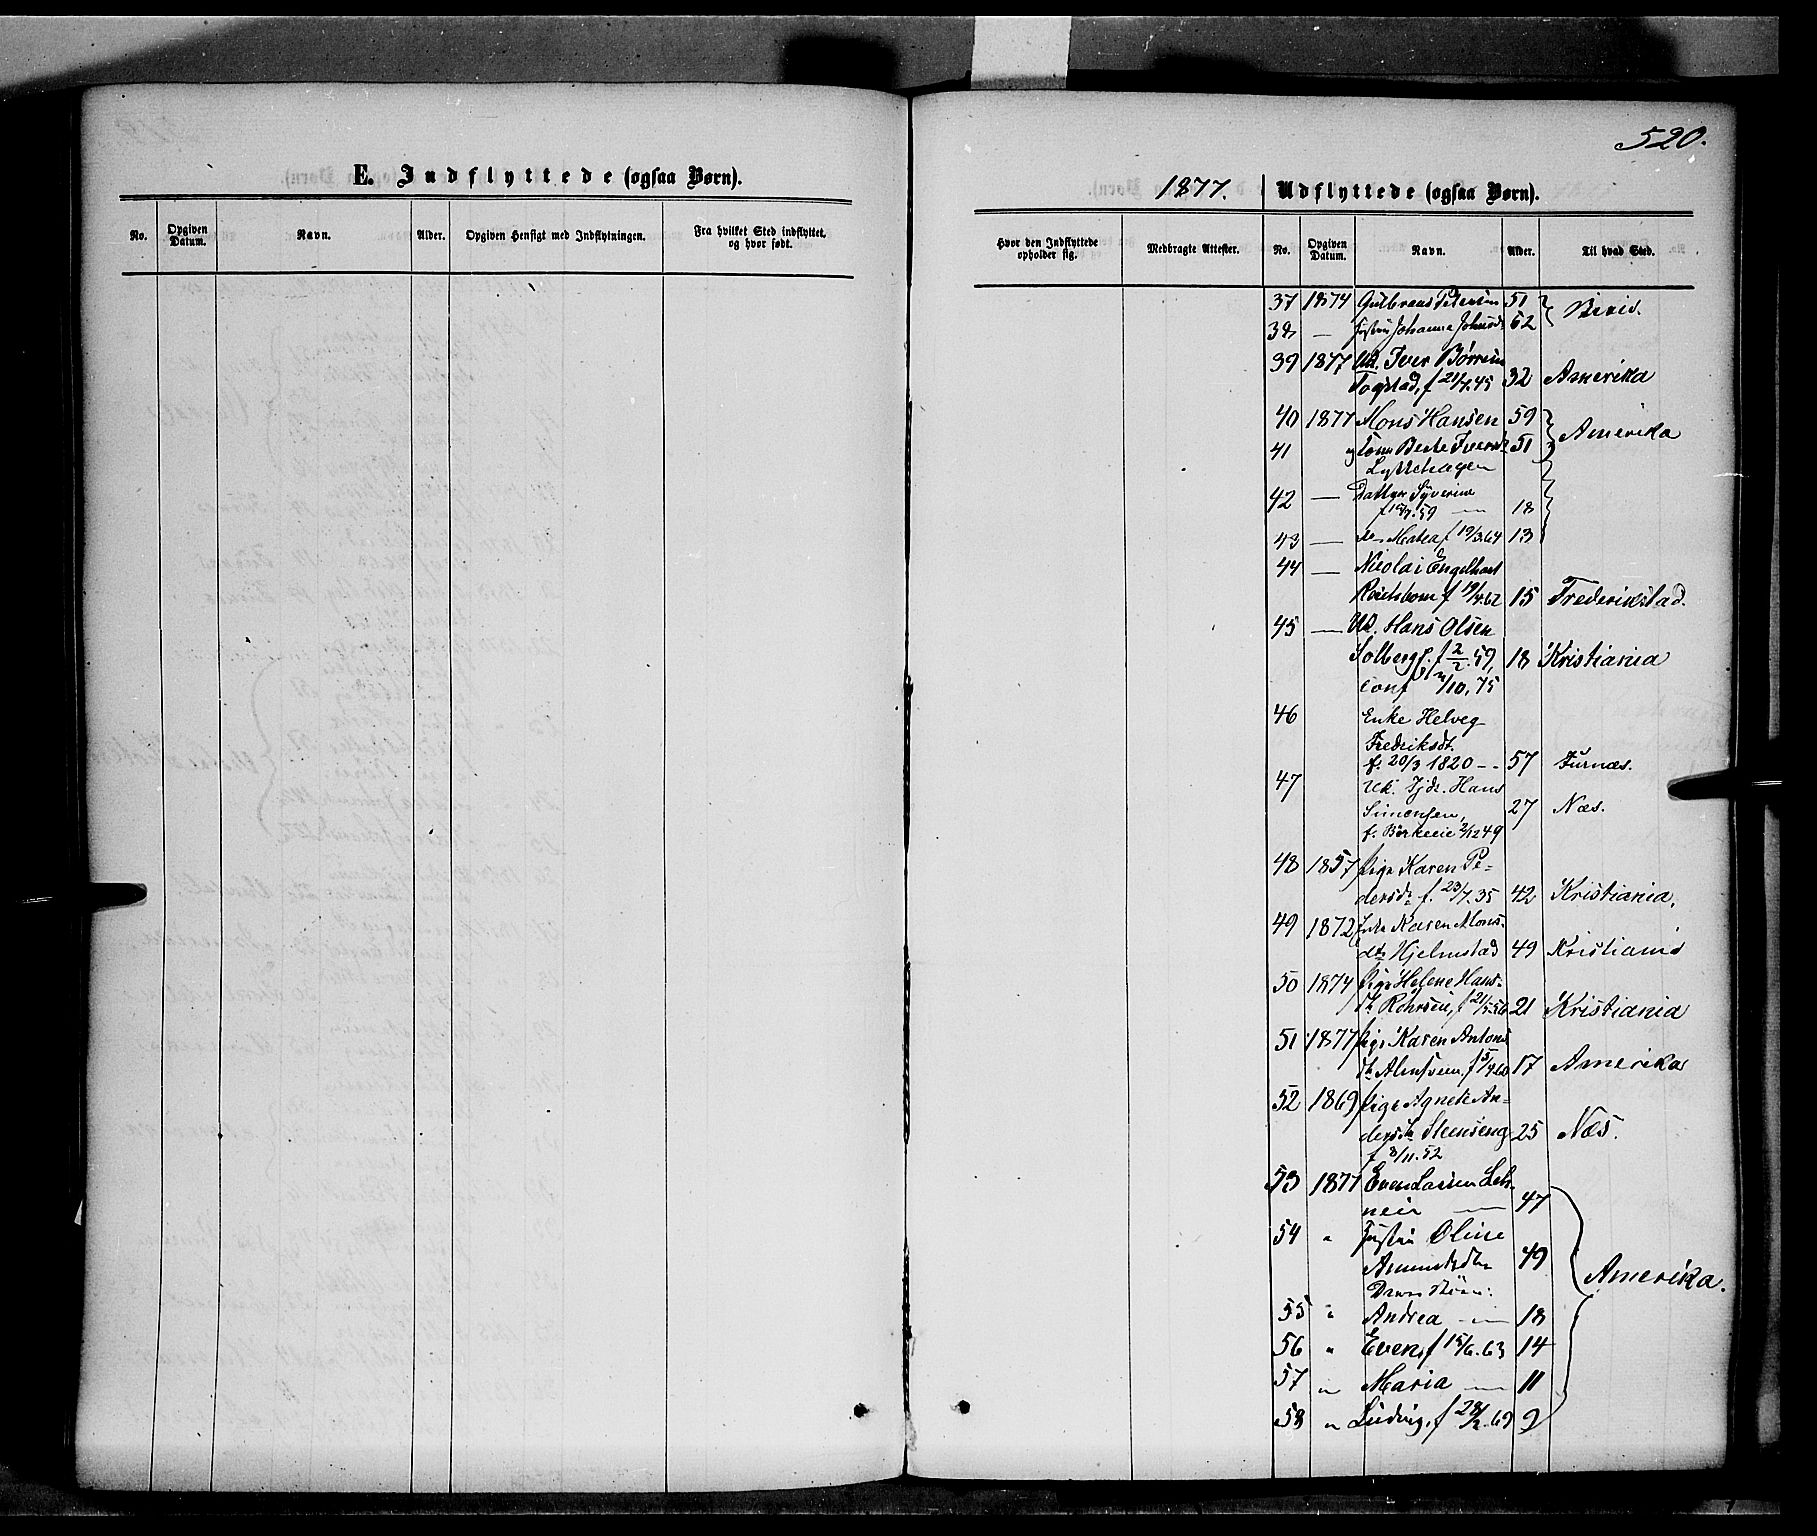 520.
E. Indflyttede (ogsaa Børn).
1877. Udflyttede (ogsaa Børn).
No. Opgiven Datum. Navn. Alder. Opgiven Hensigt med Indflytningen. Fra hvilket Sted indflyttet, og hvor født.
Hvor den Indflyttede opholder sig. Medbragte Attester. No. Opgiven Datum. Navn. Alder. Til hvad Sted.
37 1874 Gulbrand Petersen 51
38 — Johanne 52
39 1877 Uk. Iver Børresen
Togstad, f 21/1.45 32 Amerika
40 1877 Mons Hansen 59
Amerika
41 Kone Berte Iversd. 51
Lykkehagen
42 — Datter Syverine
f. 59 — 18
43 — do Mathea f 19/3.64 13
44 — Nicolai Engelhart
f 19/4.62 15 Frederikstad.
45 — Uk. Hans Olsen
Solberg, f. 2/2.59, 18 Kristiania
conf /10, 75
46 Enke Helveg
Fredriksdt.
f. 20/3 1820 - - 57 Furnæs.
47 Uk. Tjdr. Hans
Simensen, 27 Næs.
f. Børkeeie 2/12 49
48 1857 Pige Karen Pe-
dersdr f. 23/7.35 42 Kristiania.
49 1872 Enke Karen Mons-
dtr Hjelmstad 49 Kristiania
50 1874 Pige Helene Hans-
dtr Røhrsein, f 21/5.56 21 Kristiania
51 1877 Pige Karen Antons
dtr f 5/4 60 17 Amerika
52 1869 Pige Agnete An-
dersdtr Stenseng 25 Næs.
f 8/11.52
53 1877 Even Larsen
— 47
54 " Hustru Oline
49
Amerika.
Deres Børn:
55 " Andrea — 18
56 " Even, f 15/6.63 14
57 " Maria — 11
58 " Ludvig, f 28/2.69 9